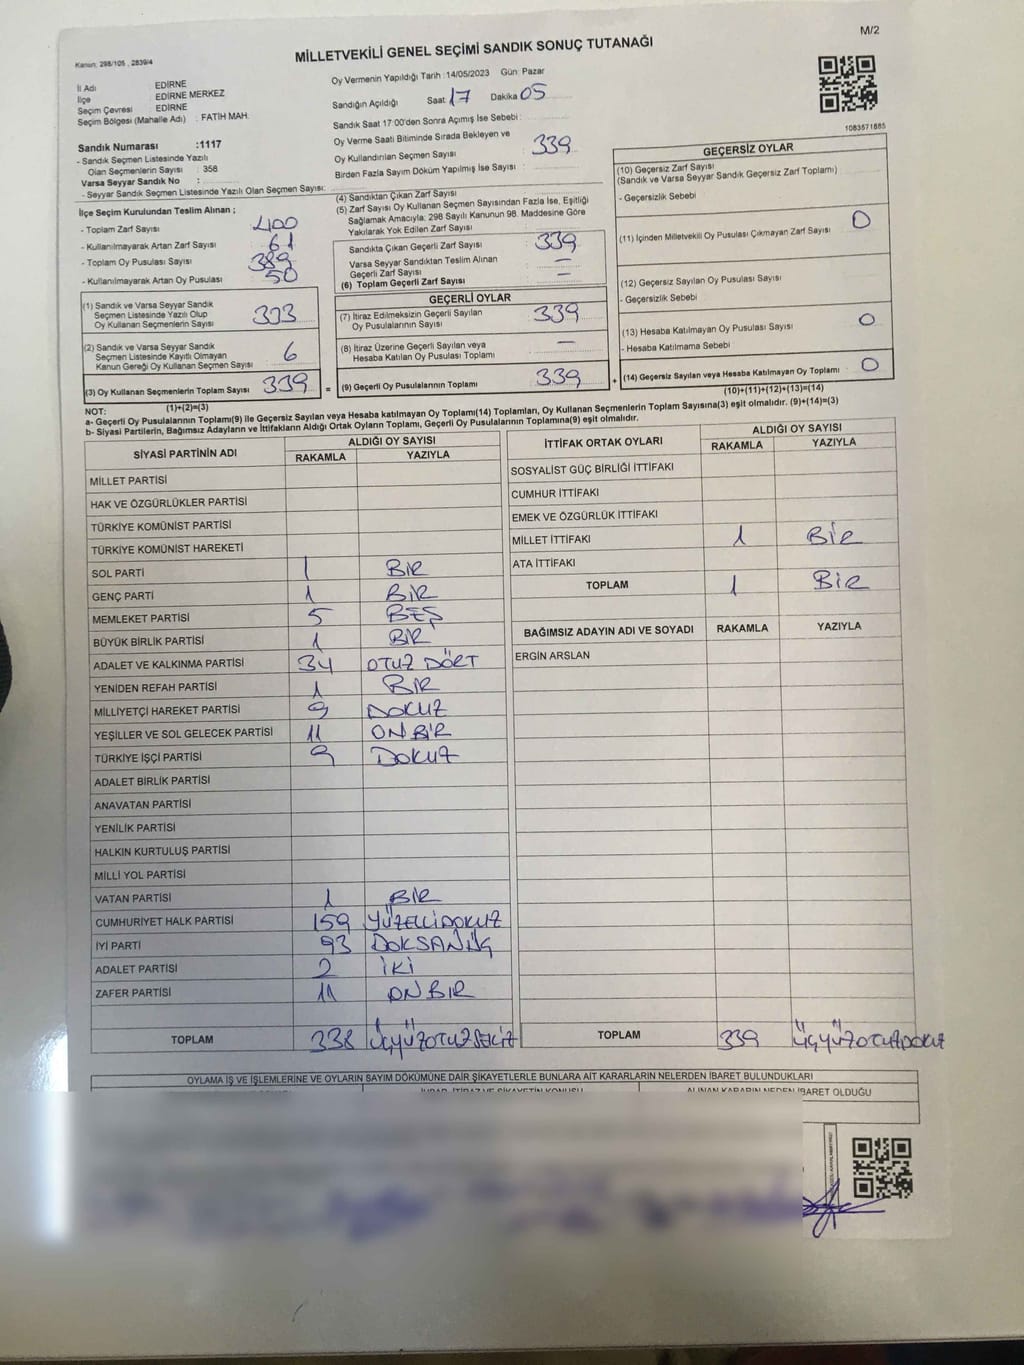 M/2
Kanun: 298/105 , 2839/4
MİLLETVEKİLİ GENEL SEÇİMİ SANDIK SONUÇ TUTANAĞI
İl Adı EDİRNE
İlçe EDİRNE MERKEZ
Seçim Çevresi EDİRNE
Seçim Bölgesi (Mahalle Adı) : FATİH MAH.
Sandık Numarası :1117
- Sandık Seçmen Listesinde Yazılı
Olan Seçmenlerin Sayısı : 358
Varsa Seyyar Sandık No :
- Seyyar Sandık Seçmen Listesinde Yazılı Olan Seçmen Sayısı:
Oy Vermenin Yapıldığı Tarih : 14/05/2023 Gün: Pazar
Sandığın Açıldığı Saat 17 Dakika 05
Sandık Saat 17:00'den Sonra Açımış İse Sebebi :
Oy Verme Saati Bitiminde Sırada Bekleyen ve
Oy Kullandırılan Seçmen Sayısı : 339
Birden Fazla Sayım Döküm Yapılmış İse Sayısı :
1083571885
İlçe Seçim Kurulundan Teslim Alınan ;
- Toplam Zarf Sayısı 400
- Kullanılmayarak Artan Zarf Sayısı 61
- Toplam Oy Pusulası Sayısı 389
- Kullanılmayarak Artan Oy Pusulası 50
(1) Sandık ve Varsa Seyyar Sandık
Seçmen Listesinde Yazılı Olup
Oy Kullanan Seçmenlerin Sayısı 333
(2) Sandık ve Varsa Seyyar Sandık
Seçmen Listesinde Kayıtlı Olmayan
Kanun Gereği Oy Kullanan Seçmen Sayısı 6
(3) Oy Kullanan Seçmenlerin Toplam Sayısı 339 =
(1)+(2)=(3)
(4) Sandıktan Çıkan Zarf Sayısı
(5) Zarf Sayısı Oy Kullanan Seçmen Sayısından Fazla İse, Eşitliği
Sağlamak Amacıyla: 298 Sayılı Kanunun 98. Maddesine Göre
Yakılarak Yok Edilen Zarf Sayısı
Sandıkta Çıkan Geçerli Zarf Sayısı 339
Varsa Seyyar Sandıktan Teslim Alınan
Geçerli Zarf Sayısı —
(6) Toplam Geçerli Zarf Sayısı —
GEÇERLİ OYLAR
(7) İtiraz Edilmeksizin Geçerli Sayılan
Oy Pusulalarının Sayısı 339
(8) İtiraz Üzerine Geçerli Sayılan veya
Hesaba Katılan Oy Pusulası Toplamı —
(9) Geçerli Oy Pusulalarının Toplamı 339 +
GEÇERSİZ OYLAR
(10) Geçersiz Zarf Sayısı
(Sandık ve Varsa Seyyar Sandık Geçersiz Zarf Toplamı)
- Geçersizlik Sebebi
(11) İçinden Milletvekili Oy Pusulası Çıkmayan Zarf Sayısı 0
(12) Geçersiz Sayılan Oy Pusulası Sayısı
- Geçersizlik Sebebi
(13) Hesaba Katılmayan Oy Pusulası Sayısı 0
- Hesaba Katılmama Sebebi
(14) Geçersiz Sayılan veya Hesaba Katılmayan Oy Toplamı 0
(10)+(11)+(12)+(13)=(14)
NOT:
a- Geçerli Oy Pusulalarının Toplamı(9) ile Geçersiz Sayılan veya Hesaba katılmayan Oy Toplamı(14) Toplamları, Oy Kullanan Seçmenlerin Toplam Sayısına(3) eşit olmalıdır. (9)+(14)=(3)
b- Siyasi Partilerin, Bağımsız Adayların ve İttifakların Aldığı Ortak Oyların Toplamı, Geçerli Oy Pusulalarının Toplamına(9) eşit olmalıdır.
SİYASİ PARTİNİN ADI ALDIĞI OY SAYISI
RAKAMLA YAZIYLA
MİLLET PARTİSİ
HAK VE ÖZGÜRLÜKLER PARTİSİ
TÜRKİYE KOMÜNİST PARTİSİ
TÜRKİYE KOMÜNİST HAREKETİ
SOL PARTİ 1 BİR
GENÇ PARTİ 1 BİR
MEMLEKET PARTİSİ 5 BEŞ
BÜYÜK BİRLİK PARTİSİ 1 BİR
ADALET VE KALKINMA PARTİSİ 34 OTUZ DÖRT
YENİDEN REFAH PARTİSİ 1 BİR
MİLLİYETÇİ HAREKET PARTİSİ 9 DOKUZ
YEŞİLLER VE SOL GELECEK PARTİSİ 11 ONBİR
TÜRKİYE İŞÇİ PARTİSİ 9 DOKUZ
ADALET BİRLİK PARTİSİ
ANAVATAN PARTİSİ
YENİLİK PARTİSİ
HALKIN KURTULUŞ PARTİSİ
MİLLİ YOL PARTİSİ
VATAN PARTİSİ 1 BİR
CUMHURİYET HALK PARTİSİ 159 YÜZELLİDOKUZ
İYİ PARTİ 93 DOKSANÜÇ
ADALET PARTİSİ 2 İKİ
ZAFER PARTİSİ 11 ONBİR
TOPLAM 338 ÜÇYÜZOTUZSEKİZ
İTTİFAK ORTAK OYLARI ALDIĞI OY SAYISI
RAKAMLA YAZIYLA
SOSYALİST GÜÇ BİRLİĞİ İTTİFAKI
CUMHUR İTTİFAKI
EMEK VE ÖZGÜRLÜK İTTİFAKI
MİLLET İTTİFAKI 1 BİR
ATA İTTİFAKI
TOPLAM 1 BİR
BAĞIMSIZ ADAYIN ADI VE SOYADI RAKAMLA YAZIYLA
ERGİN ARSLAN
TOPLAM 339 ÜÇYÜZOTUZDOKUZ
OYLAMA İŞ VE İŞLEMLERİNE VE OYLARIN SAYIM DÖKÜMÜNE DAİR ŞİKAYETLERLE BUNLARA AİT KARARLARIN NELERDEN İBARET BULUNDUKLARI
ALINAN KARARIN NEDEN İBARET OLDUĞU